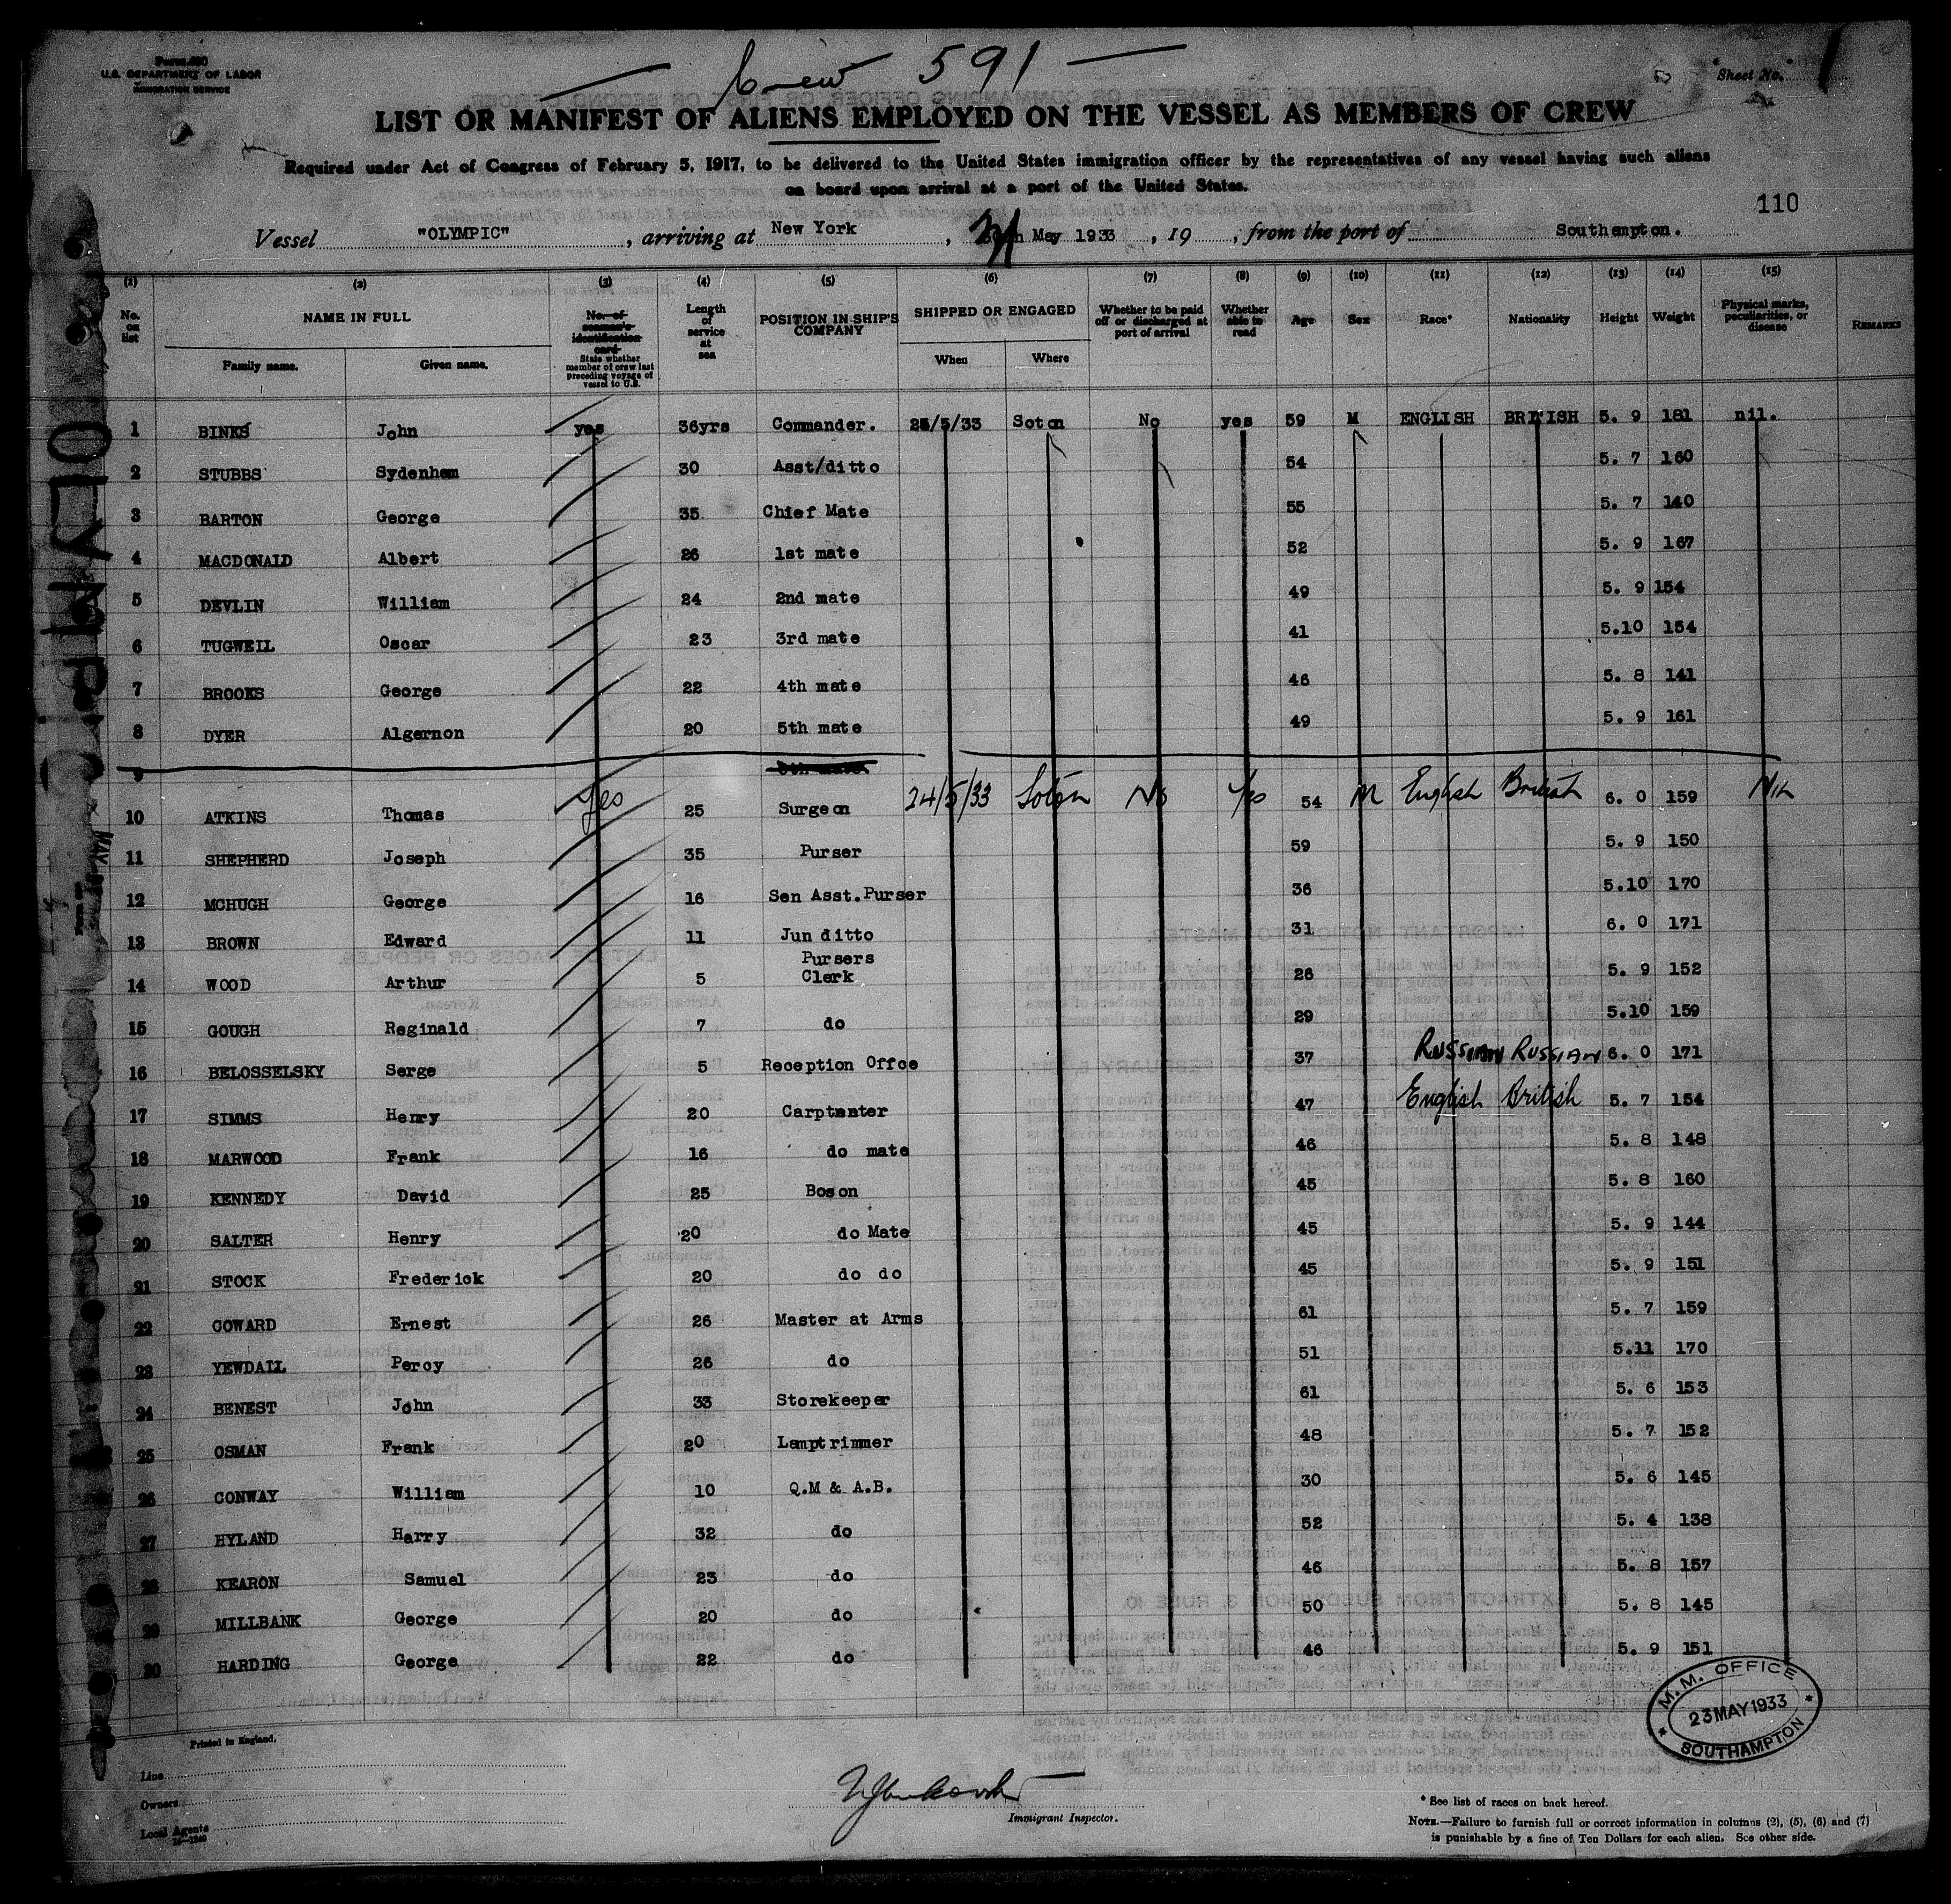 Crew 591
Form 680
U.S. DEPARTMENT OF LABOR
IMMIGRATION SERVICE
Sheet No. 1
LIST OR MANIFEST OF ALIENS EMPLOYED ON THE VESSEL AS MEMBERS OF CREW
Required under Act of Congress of February 5, 1917, to be delivered to the United States immigration officer by the representatives of any vessel having such aliens
on board upon arrival at a port of the United States.
110
Vessel "OLYMPIC", arriving at New York, May 1933, 19, from the port of Southampton.
(1) (2) (3) (4) (5) (6) (7) (8) (9) (10) (11) (12) (13) (14) (15)
No. on list
NAME IN FULL
Family name. Given name.
No. of seaman's identification card
State whether member of crew last preceding voyage of vessel to U.S.
Length of service at sea
POSITION IN SHIP'S COMPANY
SHIPPED OR ENGAGED
When Where
Whether to be paid off or discharged at port of arrival
Whether able to read
Age
Sex
Race*
Nationality
Height
Weight
Physical marks, peculiarities, or disease
REMARKS
1 BINKS John yes 36yrs Commander. /5/33 Soton No yes 59 M ENGLISH BRITISH 5. 9 181 nil.
2 STUBBS Sydenham 30 Asst/ditto 54 5. 7 160
3 BARTON George 35 Chief Mate 55 5. 7 140
4 MACDONALD Albert 26 1st mate 52 5. 9 167
5 DEVLIN William 24 2nd mate 49 5. 9 154
6 TUGWELL Oscar 23 3rd mate 41 5.10 154
7 BROOKS George 22 4th mate 46 5. 8 141
8 DYER Algernon 20 5th mate 49 5. 9 161
9 6th mate
10 ATKINS Thomas Yes 25 Surgeon 24/5/33 Soton No Yes 54 M English British 6. 0 159 Nil
11 SHEPHERD Joseph 35 Purser 59 5. 9 150
12 MCHUGH George 16 Sen Asst.Purser 36 5.10 170
13 BROWN Edward 11 Jun ditto 31 6. 0 171
14 WOOD Arthur 5 Pursers Clerk 26 5. 9 152
15 GOUGH Reginald 7 do 29 5.10 159
16 BELOSSELSKY Serge 5 Reception Offce 37 RUSSIAN RUSSIAN 6. 0 171
17 SIMMS Henry 20 Carptnater 47 English British 5. 7 154
18 MARWOOD Frank 16 do mate 46 5. 8 148
19 KENNEDY David 25 Boson 45 5. 8 160
20 SALTER Henry 20 do Mate 45 5. 9 144
21 STOCK Frederick 20 do do 45 5. 9 151
22 COWARD Ernest 26 Master at Arms 61 5. 7 159
23 YEWDALL Percy 26 do 51 5.11 170
24 BENEST John 33 Storekeeper 61 5. 6 153
25 OSMAN Frank 20 Lamptrimmer 48 5. 7 152
26 CONWAY William 10 Q.M & A.B. 30 5. 6 145
27 HYLAND Harry 32 do 52 5. 4 138
28 KEARON Samuel 23 do 46 5. 8 157
29 MILLBANK George 20 do 50 5. 8 145
30 HARDING George 22 do 46 5. 9 151
M.M. OFFICE
23 MAY 1933
SOUTHAMPTON
Printed in England.
Line
Owners
Local Agents
Immigrant Inspector.
* See list of races on back hereof.
NOTE.—Failure to furnish full or correct information in columns (2), (5), (6) and (7)
is punishable by a fine of Ten Dollars for each alien. See other side.
OLYMPIC